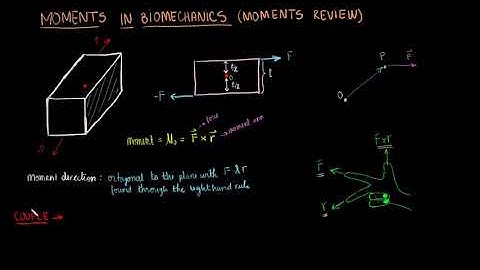 MOMENTS IN BIOMECHANICS (MOMENTS REVIEW)
F
-F
l/2
O
l/2
l
P
F
O
force
moment = M₀ = F × r → moment arm
moment direction: ortogonal to the plane with F & r
found through the right hand rule
F×r
F
r
COUPLE →